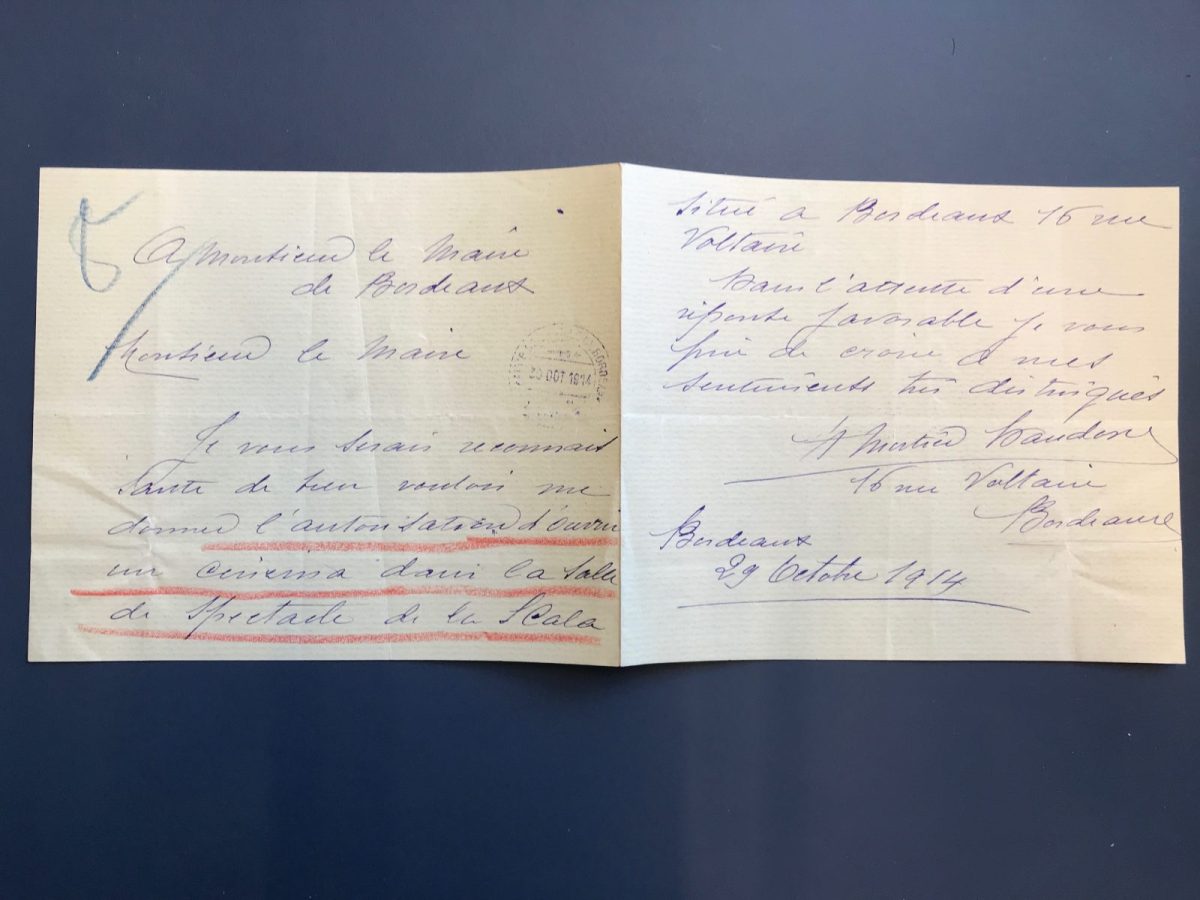 A Monsieur le Maire
de Bordeaux
Monsieur le Maire
30 OCT 1914
Je vous serais reconnais
sante de bien vouloir me
donner l'autorisation d'ouvrir
un cinéma dans la salle
de spectacle de la Scala
situé a Bordeaux 16 rue
Voltaire
Dans l'attente d'une
réponse favorable je vous
prie de croire a mes
sentiments très distingués
16 rue Voltaire
Bordeaux
Bordeaux
29 Octobre 1914